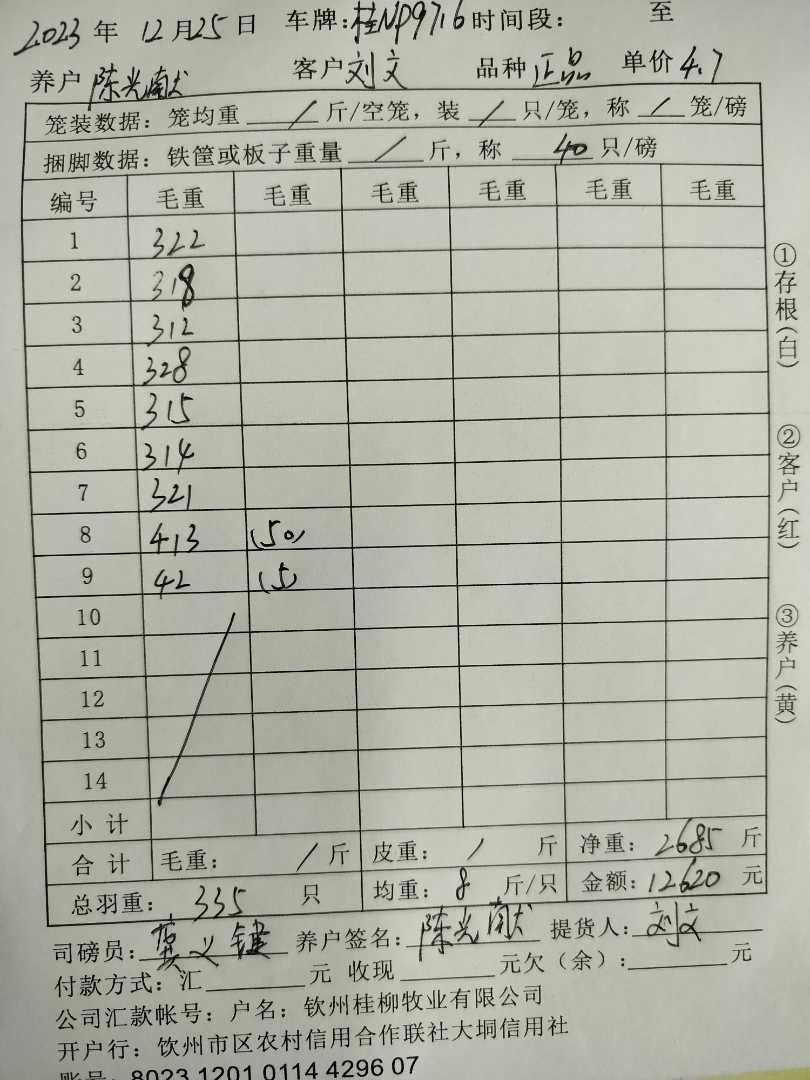 2023 年 12月25 日 车牌:桂NP9716 时间段: 至
养户 陈光献 客户 刘文 品种 正品 单价 4.7
笼装数据: 笼均重 / 斤/空笼, 装 / 只/笼, 称 / 笼/磅
捆脚数据: 铁筐或板子重量 / 斤, 称 40 只/磅
编号 毛重 毛重 毛重 毛重 毛重 毛重
1 322
2 318
3 312
4 328
5 315
6 314
7 321
8 413 (50)
9 42 (5)
10
11
12
13
14
小 计
合 计 毛重: / 斤 皮重: / 斤 净重: 2685 斤
总羽重: 335 只 均重: 8 斤/只 金额: 12620 元
司磅员: 龚义键 养户签名: 陈光献 提货人: 刘文
付款方式: 汇 元 收现 元欠(余): 元
公司汇款帐号: 户名: 钦州桂柳牧业有限公司
开户行: 钦州市区农村信用合作联社大垌信用社
账号: 8023 1201 0114 4296 07
①存根(白)
②客户(红)
③养户(黄)